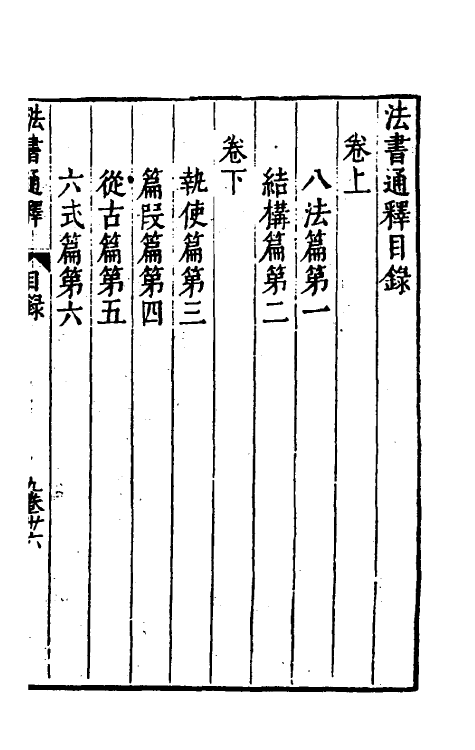 法書通釋目錄
卷上
八法篇第一
結構篇第二
卷下
執使篇第三
篇段篇第四
從古篇第五
六式篇第六
法書通釋
目錄
九卷廿六